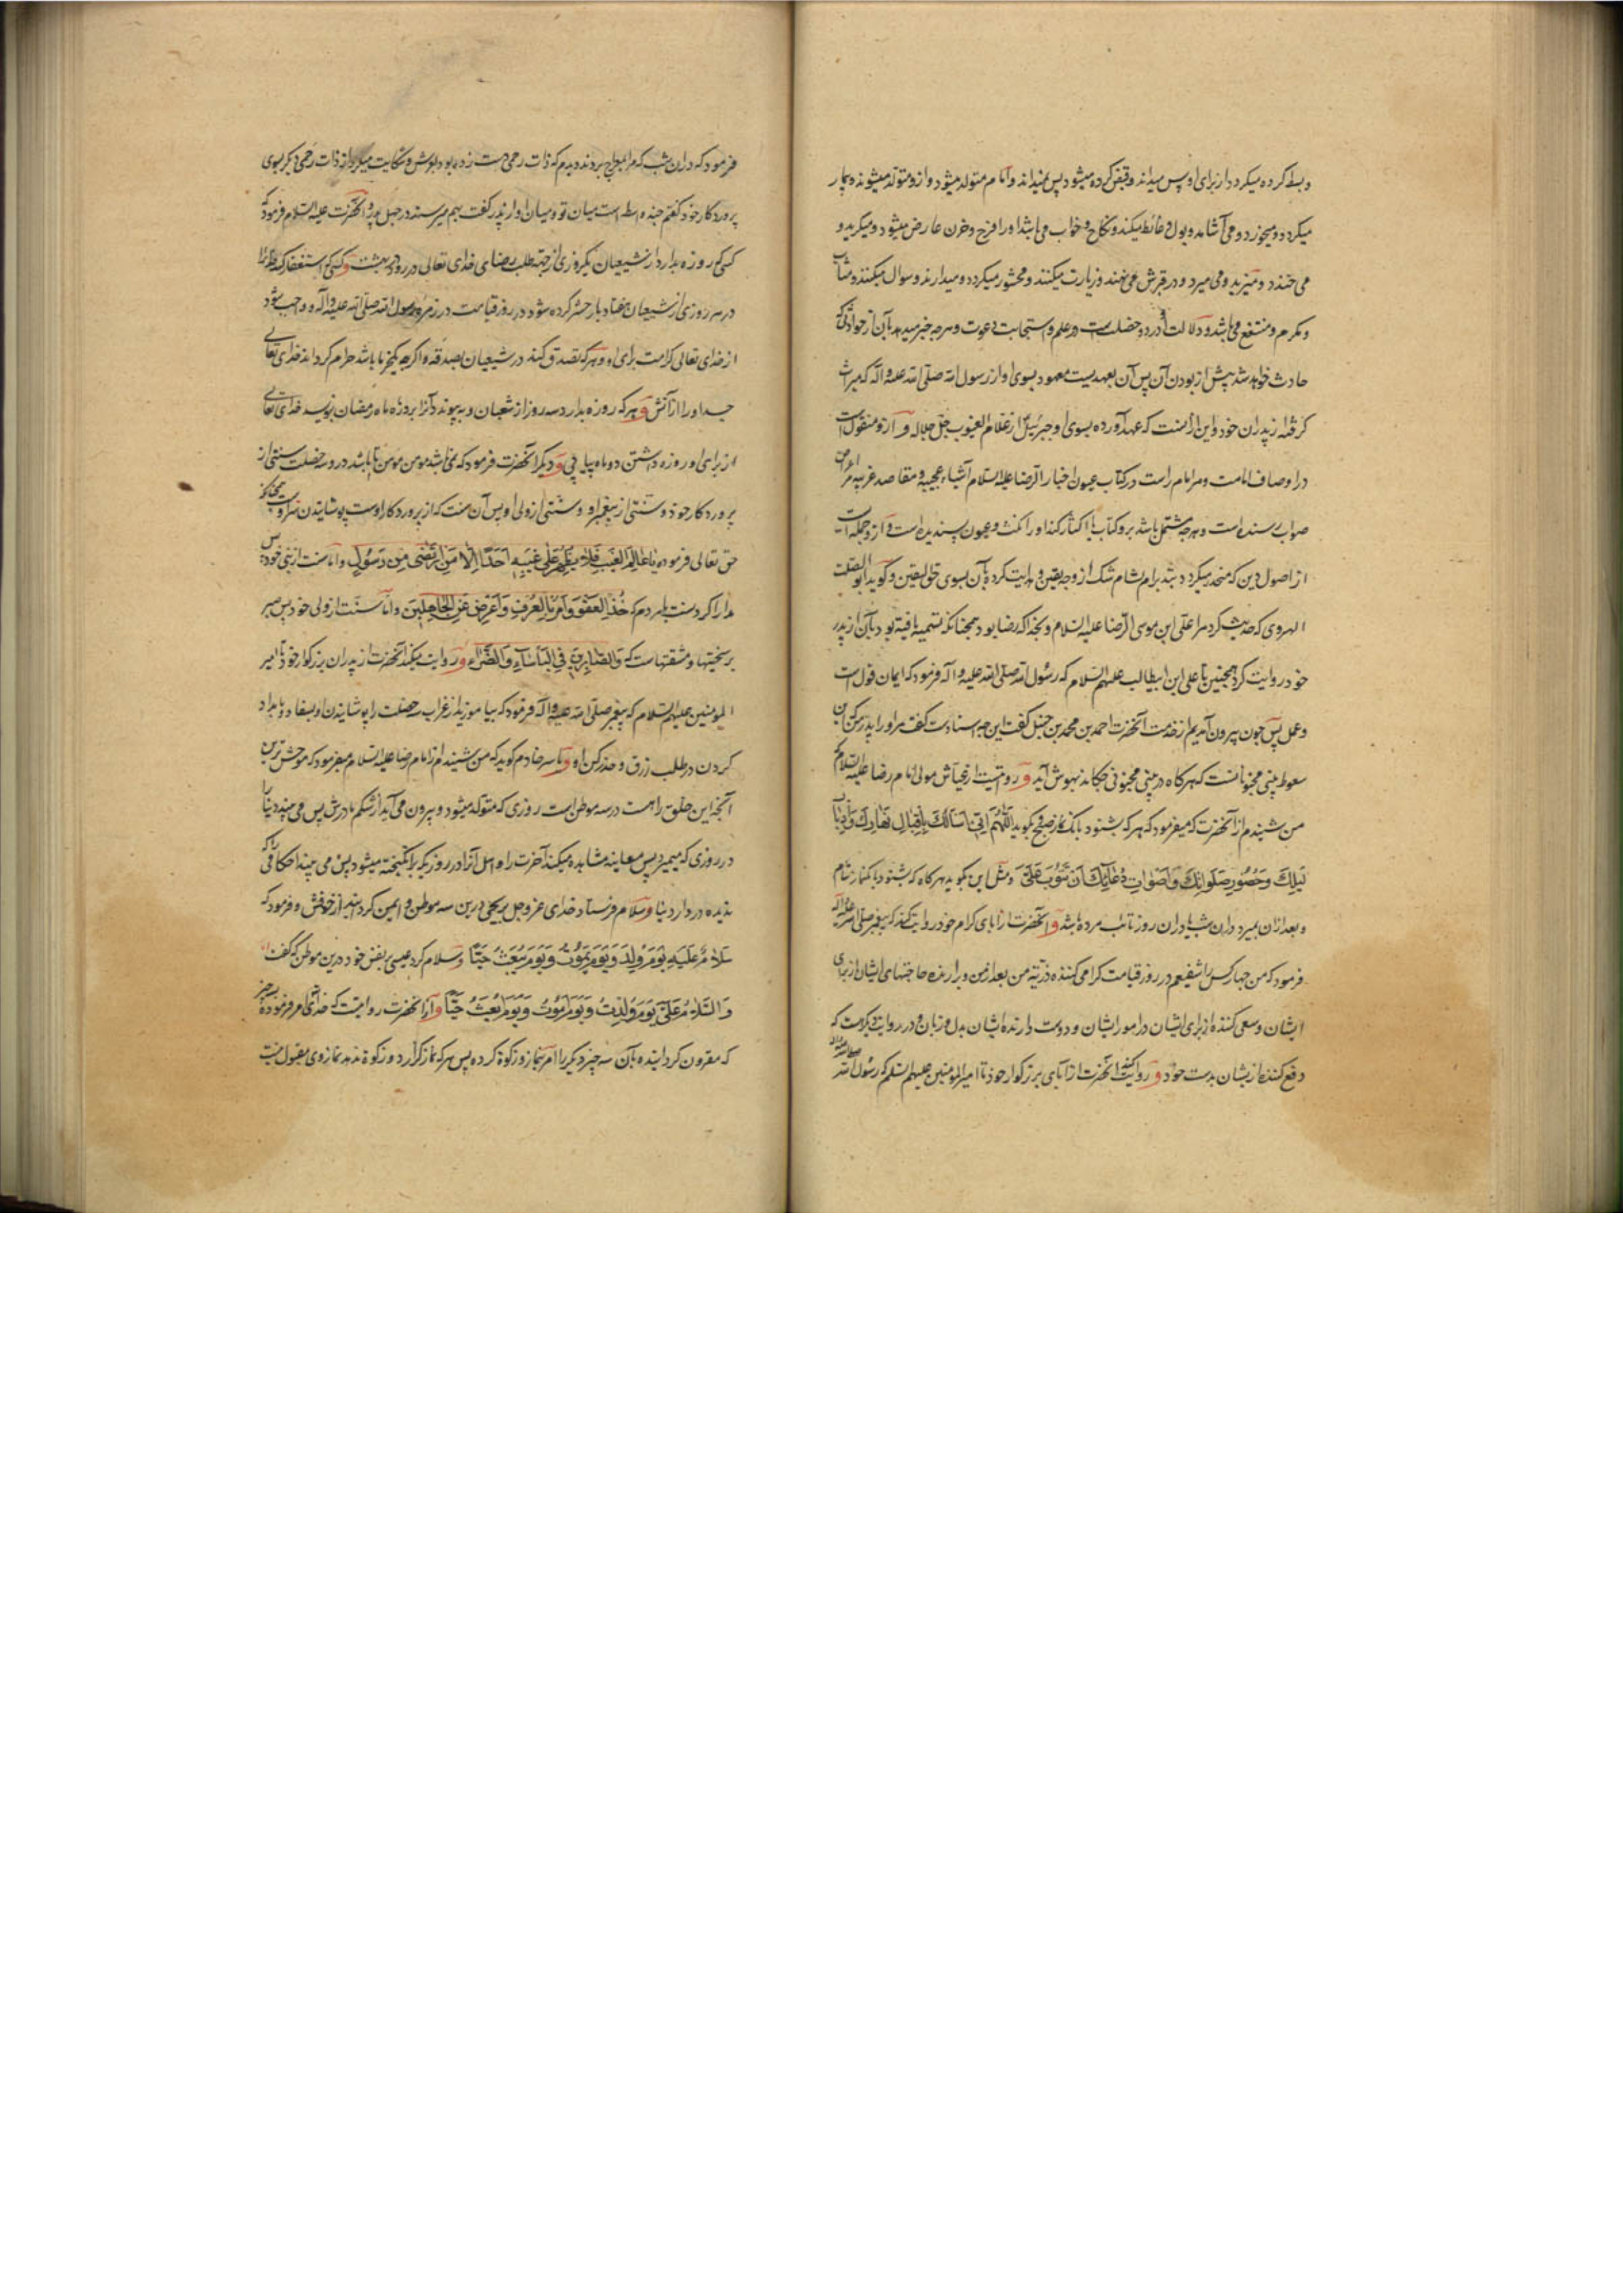 و بسط کرده میکردد از برای او پس میداند و قبض کرده میشود پس نمیداند و امام متولد میشود و ازو متولد میشوند و بیمار
میکردد و میخورد و می آشامد و بول و غائط میکند و نکاح و خواب می باشد او را فرح و حزن عارض میشود و میکرید و
می خندد و میزید و می میرد و در قبرش می نهند و زیارت میکنند و محشور میکردد و میدارند و سوال میکنند و مثاب
و مکرم و منتفع می باشد و دلالت او در دو خصلت است در علم و استجابت دعوت و هرچه خبر میدهد بآن از حوادثی که
حادث خواهد شد پیش از بودن آن پس آن بعهدیست معهود بسوی او از رسول الله صلی الله علیه و اله که میراث
کرفته از پدران خود و این از آنست که عهد آورده بسوی او جبرئیل از علام الغیوب جل جلاله و ازو منقول است
در اوصاف امامت و مر امام راست در کتاب عیون اخبار الرضا علیه السلام اشیاء عجیبه و مقاصد غریبه
صواب رسنده است و هرچه مشتمل باشد برو کتاب
از اصول دین که منحدر میکردد شک از وجه یقین و هدایت کرده بآن بسوی حق الیقین و کوید ابو الصلت
الهروی که حدیث کرد مرا علی ابن موسی الرضا علیه السلام و بخدا که رضا بود همچنانکه تسمیه یافته بود بآن از پدر
خود روایت کرد همچنین تا علی ابن ابیطالب علیهم السلام که رسول الله صلی الله علیه و اله فرمود که ایمان قول است
و عمل پس چون بیرون آمدیم از خدمت آنحضرت احمد بن محمد بن حنبل کفت این چه اسنادست کفت مر او را پدر من که این
سعوط مجانین است که هرکاه در بینی مجنونی چکانند بهوش آید و رویست از عیاش مولی امام رضا علیه السلام که
من شنیدم از آنحضرت که میفرمود که هرکه بشنود بانک نماز صبح بکوید اللهم انی اسألک باقبال نهارک و ادبار
لیلک و حضور صلواتک و اصوات دعاتک ان تتوب علی و مثل این بکوید هرکاه که بشنود بانک نماز شام
و بعد ازان بمیرد دران شب یا دران روز تائب مرده باشد و آنحضرت از آبای کرام خود روایت کند که پیغمبر صلی الله علیه و اله
فرمود که من چهار کس را شفیعم در روز قیامت کرامی کننده ذریه من بعد از من و برارنده حاجتهای ایشان از برای
ایشان و سعی کننده از برای ایشان در امور ایشان و دوست دارنده ایشان بدل و زبان و در روایت دیکرست که
دفع کننده از یشان بدست خود و روایت کند آنحضرت از آبای بزرکوار خود تا امیر المومنین علیهم السلم که رسول الله صلی الله علیه و اله
فرمود که دران شب که مرا بمعراج بردند دیدم که ذات رحمی دست زده بود بعرش و شکایت میکرد از ذات رحمی دیکر بسوی
پروردکار خود کفتم چند واسطه است میان تو و میان او از پدر کفت بهم میرسند در چهل پدر و آنحضرت علیه السلام فرمود که
کسی که روزه بدارد از شعبان یکروزی از جهت طلب رضای خدای تعالی در رود در بهشت و کسی که استغفار کند
در هر روزی از شعبان هفتاد بار حشر کرده شود در روز قیامت در زمره رسول الله صلی الله علیه و آله و واجب شود
از خدای تعالی کرامت برای او و هرکه تصدق کند در شعبان بصدقه و اکرچه یکخرما باشد حرام کرداند خدای تعالی
جسد او را از آتش و هرکه روزه بدارد سه روز از شعبان و بپیوندد آنرا بروزه ماه رمضان بنویسد خدای تعالی
از برای او روزه داشتن دو ماه پیاپی و دیکر آنحضرت فرمود که نمی باشد مومن مومن تا باشد درو سه خصلت سنتی از
پروردکار خود و سنتی از پیغمبر او و سنتی از ولی او پس آن سنت که از پروردکار اوست پوشانیدن سر اوست چنانکه
حق تعالی فرموده یا عالم الغیب فلا یظهر علی غیبه احدا الا من ارتضی من رسول و اما سنت از نبی خود پس
مدارا کردنست با مردم که خذ العفو و امر بالعرف و اعرض عن الجاهلین و اما سنت از ولی خود پس صبر
بر سختیها و مشقتهاست که و الصابرین فی الباساء و الضراء و روایت میکند آنحضرت از پدران بزرکوار خود تا امیر
المومنین علیهم السلام که پیغمبر صلی الله علیه و اله فرمود که بیاموزید از غراب سه خصلت را پوشانیدن او بسفاد و بامداد
کردن در طلب رزق و حذر کردن او و یاسر خادم کوید که من شنیدم از امام رضا علیه السلام میفرمود که موحش ترین
آنچه این خلق راهست در سه موطن است روزی که متولد میشود و بیرون می آید از شکم مادرش پس می بیند دنیا را
در روزی که میمیرد پس معاینه مشاهده میکند آخرت را و اهل آنرا در روزیکه برانکیخته میشود پس می بیند احکامی را که
ندیده در دار دنیا و سلام فرستاد خدای عز و جل بر یحیی درین سه موطن و ایمن کردانید از خوفش و فرمود که
سلام علیه یوم ولد و یوم یموت و یوم یبعث حیا و سلام کرد عیسی بر نفس خود درین موطن که کفت
و السلام علی یوم ولدت و یوم اموت و یوم ابعث حیا و از آنحضرت روایتست که خدای امر فرموده بسه چیز
که مقرون کردانیده بآن سه چیز دیکر را امر بنماز و زکوة کرده پس هرکه نماز کزارد و زکوة ندهد نماز وی مقبول نیست